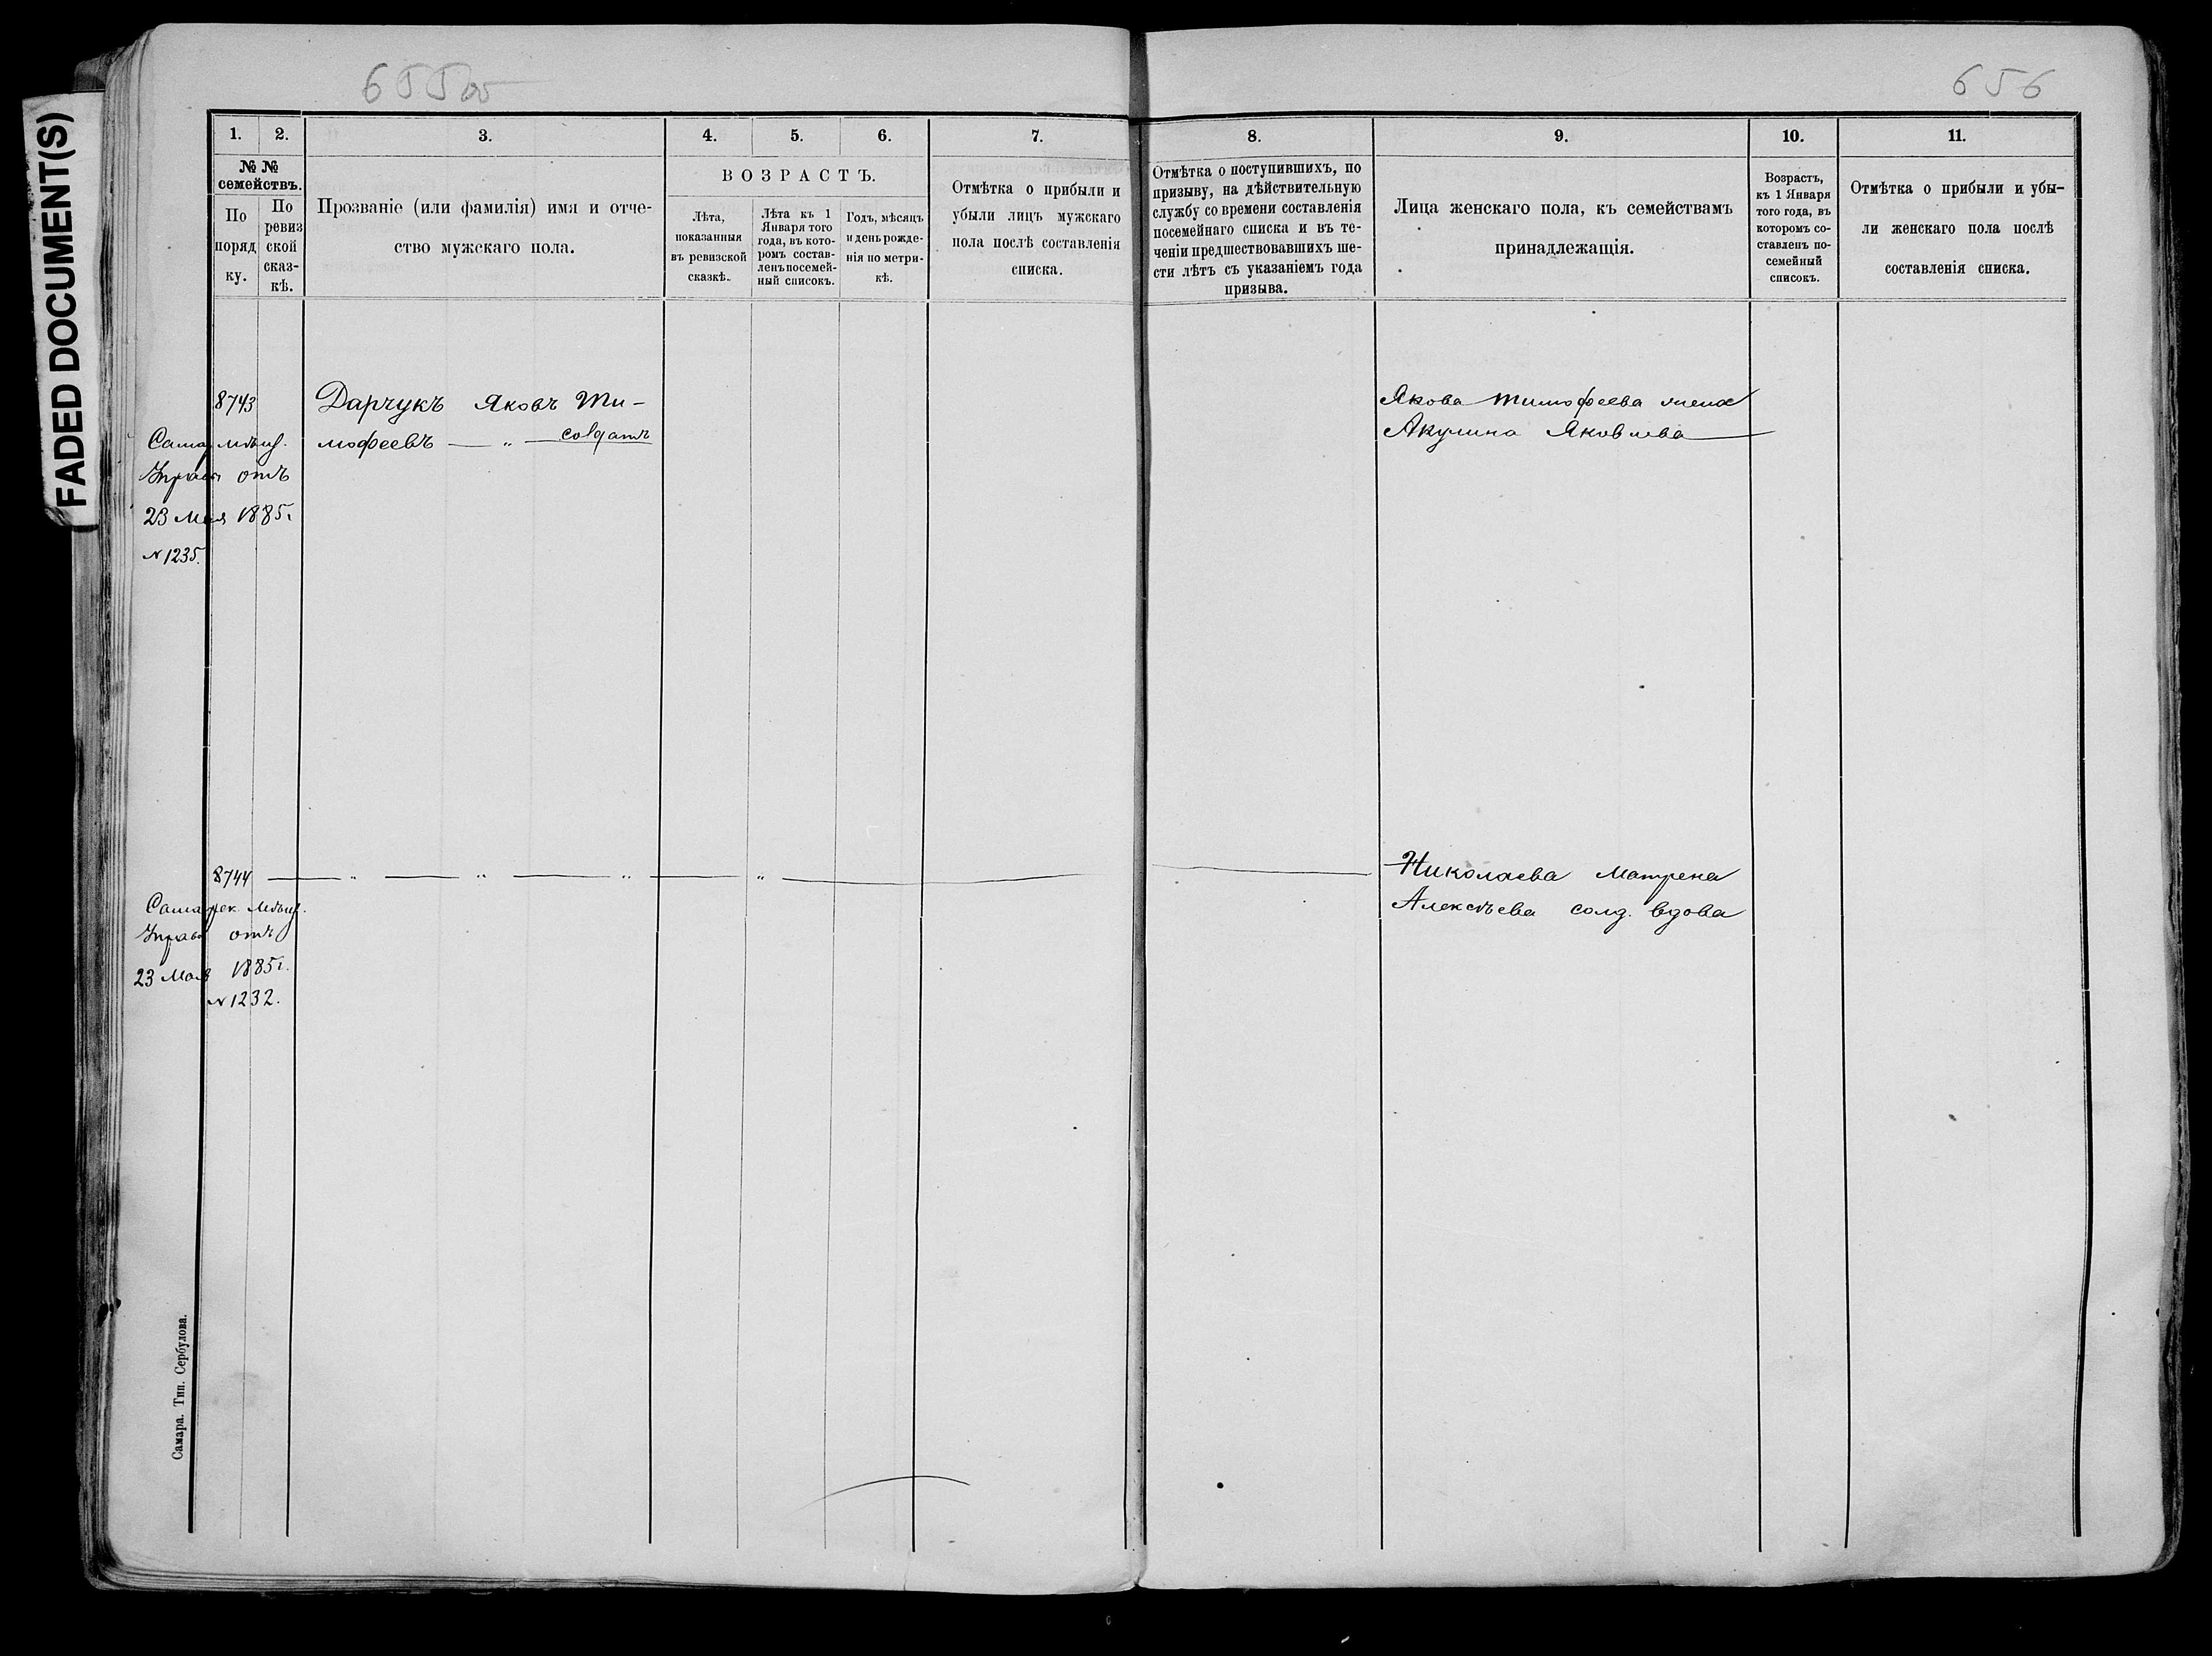 FADED DOCUMENT(S)
655об
656
1.
2.
3.
4.
5.
6.
7.
8.
9.
10.
11.
№ №
семействъ.
По
поряд
ку.
По
ревиз
ской
сказ-
кѣ.
Прозваніе (или фамилія) имя и отче-
ство мужскаго пола.
ВОЗРАСТЪ.
Лѣта,
показанныя
въ ревизской
сказкѣ.
Лѣта къ 1
Января того
года, въ кото-
ромъ состав-
ленъ посемей-
ный списокъ.
Годъ, мѣсяцъ
и день рожде-
нія по метри-
кѣ.
Отмѣтка о прибыли и
убыли лицъ мужскаго
пола послѣ составленія
списка.
Отмѣтка о поступившихъ, по
призыву, на дѣйствительную
службу со времени составленія
посемейнаго списка и въ те-
ченіи предшествовавшихъ ше-
сти лѣтъ съ указаніемъ года
призыва.
Лица женскаго пола, къ семействамъ
принадлежащія.
Возрастъ,
къ 1 Января
того года, въ
которомъ со-
ставленъ по-
семейный
списокъ.
Отмѣтка о прибыли и убы-
ли женскаго пола послѣ
составленія списка.
8743
Дарчукъ Яковъ Ти-
мофеевъ — „ — солдатъ
Самар. мѣщ.
Управы отъ
23 Мая 1885 г.
№ 1235.
Якова Тимофеева жена
Акулина Яковлева
8744 — „ — „ — „ — „ —
Самарск. мѣщ.
Управы отъ
23 Мая 1885 г.
№ 1232.
Николаева Матрена
Алексѣева солд. вдова
Самара. Тип. Сербулова.